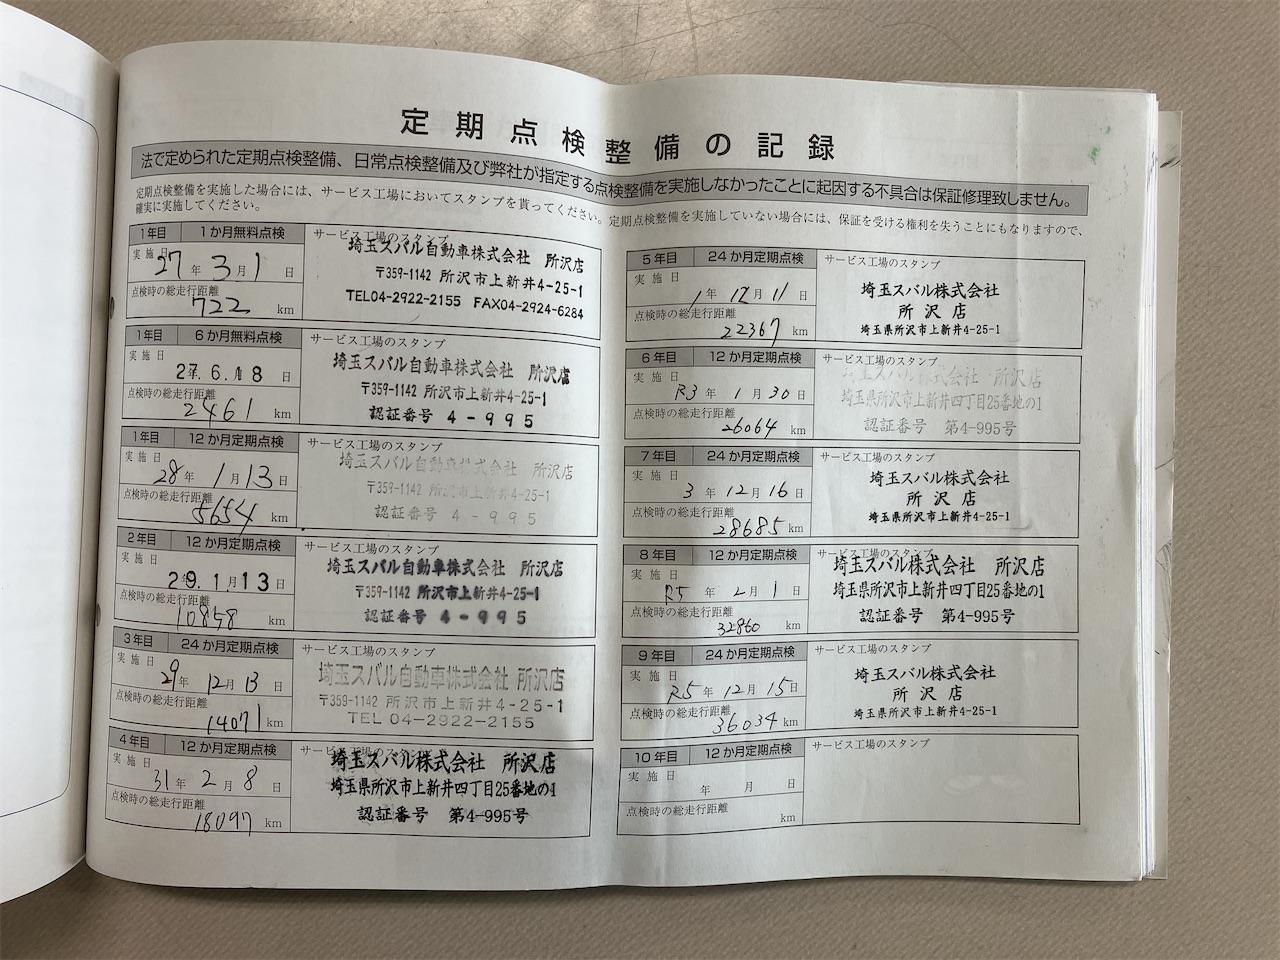 定期点検整備の記録
法で定められた定期点検整備、日常点検整備及び弊社が指定する点検整備を実施しなかったことに起因する不具合は保証修理致しません。
定期点検整備を実施した場合には、サービス工場においてスタンプを貰ってください。定期点検整備を実施していない場合には、保証を受ける権利を失うことにもなりますので、
確実に実施してください。
1年目 1か月無料点検
実施日
27年3月1日
点検時の総走行距離
722 km
サービス工場のスタンプ
埼玉スバル自動車株式会社 所沢店
〒359-1142 所沢市上新井4-25-1
TEL04-2922-2155 FAX04-2924-6284
1年目 6か月無料点検
実施日
27.6.18日
点検時の総走行距離
2461 km
サービス工場のスタンプ
埼玉スバル自動車株式会社 所沢店
〒359-1142 所沢市上新井4-25-1
認証番号 4-995
1年目 12か月定期点検
実施日
28年1月13日
点検時の総走行距離
5654 km
サービス工場のスタンプ
埼玉スバル自動車株式会社 所沢店
〒359-1142 所沢市上新井4-25-1
認証番号 4-995
2年目 12か月定期点検
実施日
29.1.13日
点検時の総走行距離
10858 km
サービス工場のスタンプ
埼玉スバル自動車株式会社 所沢店
〒359-1142 所沢市上新井4-25-1
認証番号 4-995
3年目 24か月定期点検
実施日
29年12月13日
点検時の総走行距離
14071 km
サービス工場のスタンプ
埼玉スバル自動車株式会社 所沢店
〒359-1142 所沢市上新井4-25-1
TEL 04-2922-2155
4年目 12か月定期点検
実施日
31年2月8日
点検時の総走行距離
18097 km
サービス工場のスタンプ
埼玉スバル株式会社 所沢店
埼玉県所沢市上新井四丁目25番地の1
認証番号 第4-995号
5年目 24か月定期点検
実施日
1年12月11日
点検時の総走行距離
22367 km
サービス工場のスタンプ
埼玉スバル株式会社
所沢店
埼玉県所沢市上新井4-25-1
6年目 12か月定期点検
実施日
R3年1月30日
点検時の総走行距離
26064 km
サービス工場のスタンプ
埼玉スバル株式会社 所沢店
埼玉県所沢市上新井四丁目25番地の1
認証番号 第4-995号
7年目 24か月定期点検
実施日
3年12月16日
点検時の総走行距離
28685 km
サービス工場のスタンプ
埼玉スバル株式会社
所沢店
埼玉県所沢市上新井4-25-1
8年目 12か月定期点検
実施日
R5年2月1日
点検時の総走行距離
32860 km
サービス工場のスタンプ
埼玉スバル株式会社 所沢店
埼玉県所沢市上新井四丁目25番地の1
認証番号 第4-995号
9年目 24か月定期点検
実施日
R5年12月15日
点検時の総走行距離
36034 km
サービス工場のスタンプ
埼玉スバル株式会社
所沢店
埼玉県所沢市上新井4-25-1
10年目 12か月定期点検
実施日
年 月 日
点検時の総走行距離
km
サービス工場のスタンプ